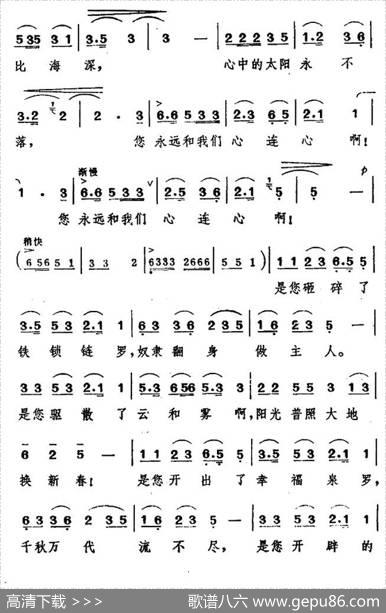 535 31 | 3.5 3 | 3 — | 2 2 2 3 5 | 1.2 3 6 |
比 海 深， 心中的太阳 永 不
3.2 2 | 2 · 3 | 6.6 5 3 3 | 2.3 5 | 2.1 1 |
落， 您 永远和我们 心 连 心 啊！
渐慢
1 · 3 | 6.6 5 3 3 | 5.5 3 5 | 2.3 5 | 5 — |
您 永远和我们 心 连 心 啊！
稍快
( 6 5 6 5 1 | 3 3 2 | 6333 2666 | 5 5 1 ) | 1 1 2 3 6.5 5 |
是您砸 碎 了
3.5 5 3 2.1 1 | 6 3 3 6 2 3 5 | 1 6 2 3 — |
铁 锁 链 罗，奴隶 翻 身 做 主 人。
3 3 5 3 2.1 | 5.3 6 5 6 5.3 | 2 2 5 5 3 1 3 |
是您驱 散 了 云 和 雾 啊，阳光 普照 大 地
6 2 5 — | 1 1 2 3 6.5 5 | 3.5 5 3 2.1 1 |
换 新 春！ 是您开 出 了 幸 福 泉 罗，
6 3 3 6 2 3 5 | 1 6 2 3 — | 3 3 5 3 2.1 |
千秋万 代 流 不 尽， 是您开 辟 的
高清下载 >>>> 歌谱八六 www.gepu86.com